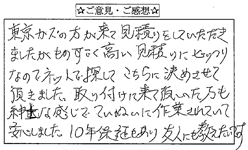 ☆ご意見・ご感想☆
東京ガスの方が来て見積りをしていただき
ましたがものすごく高い見積りにビックリ
なのでネットで探してこちらに決めさせて
頂きました。取り付けに来て頂いた方も
紳士な感じでていねいに作業されていて
安心しました。10年保証もあり友人にも教えたいです